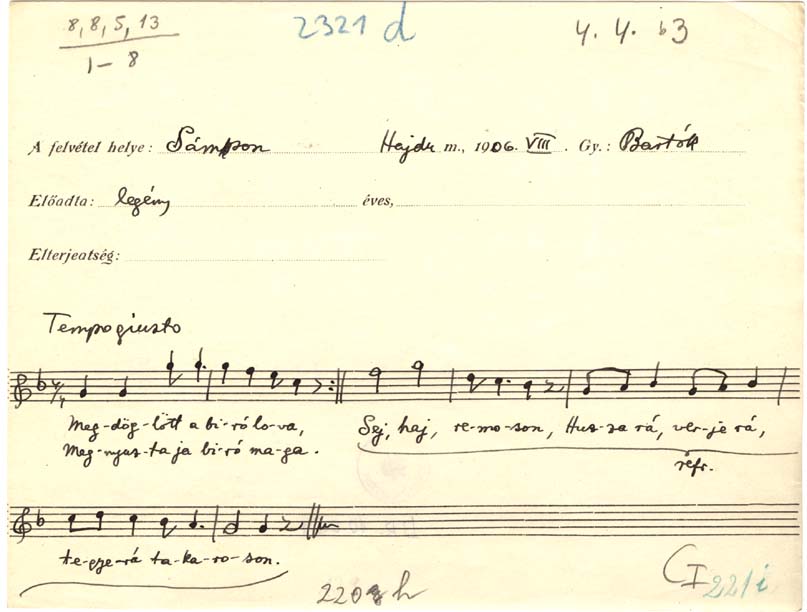 8, 8, 5, 13
1–8
2321 d
4. 4. b3
A felvétel helye: Sámson Hajdu m., 1906. VIII. Gy.: Bartók
Előadta: legény éves,
Elterjedtség:
Tempo giusto
4/4
Meg-dög-lött a bi-ró lo-va, Sej, haj, re-mo-son, Hus-sza rá, ver-je rá,
Meg-nyuz-ta ja bi-ró ma-ga.
réfr.
te-gye-rá ta-ka-ro-son.
220 h
C I 221/i